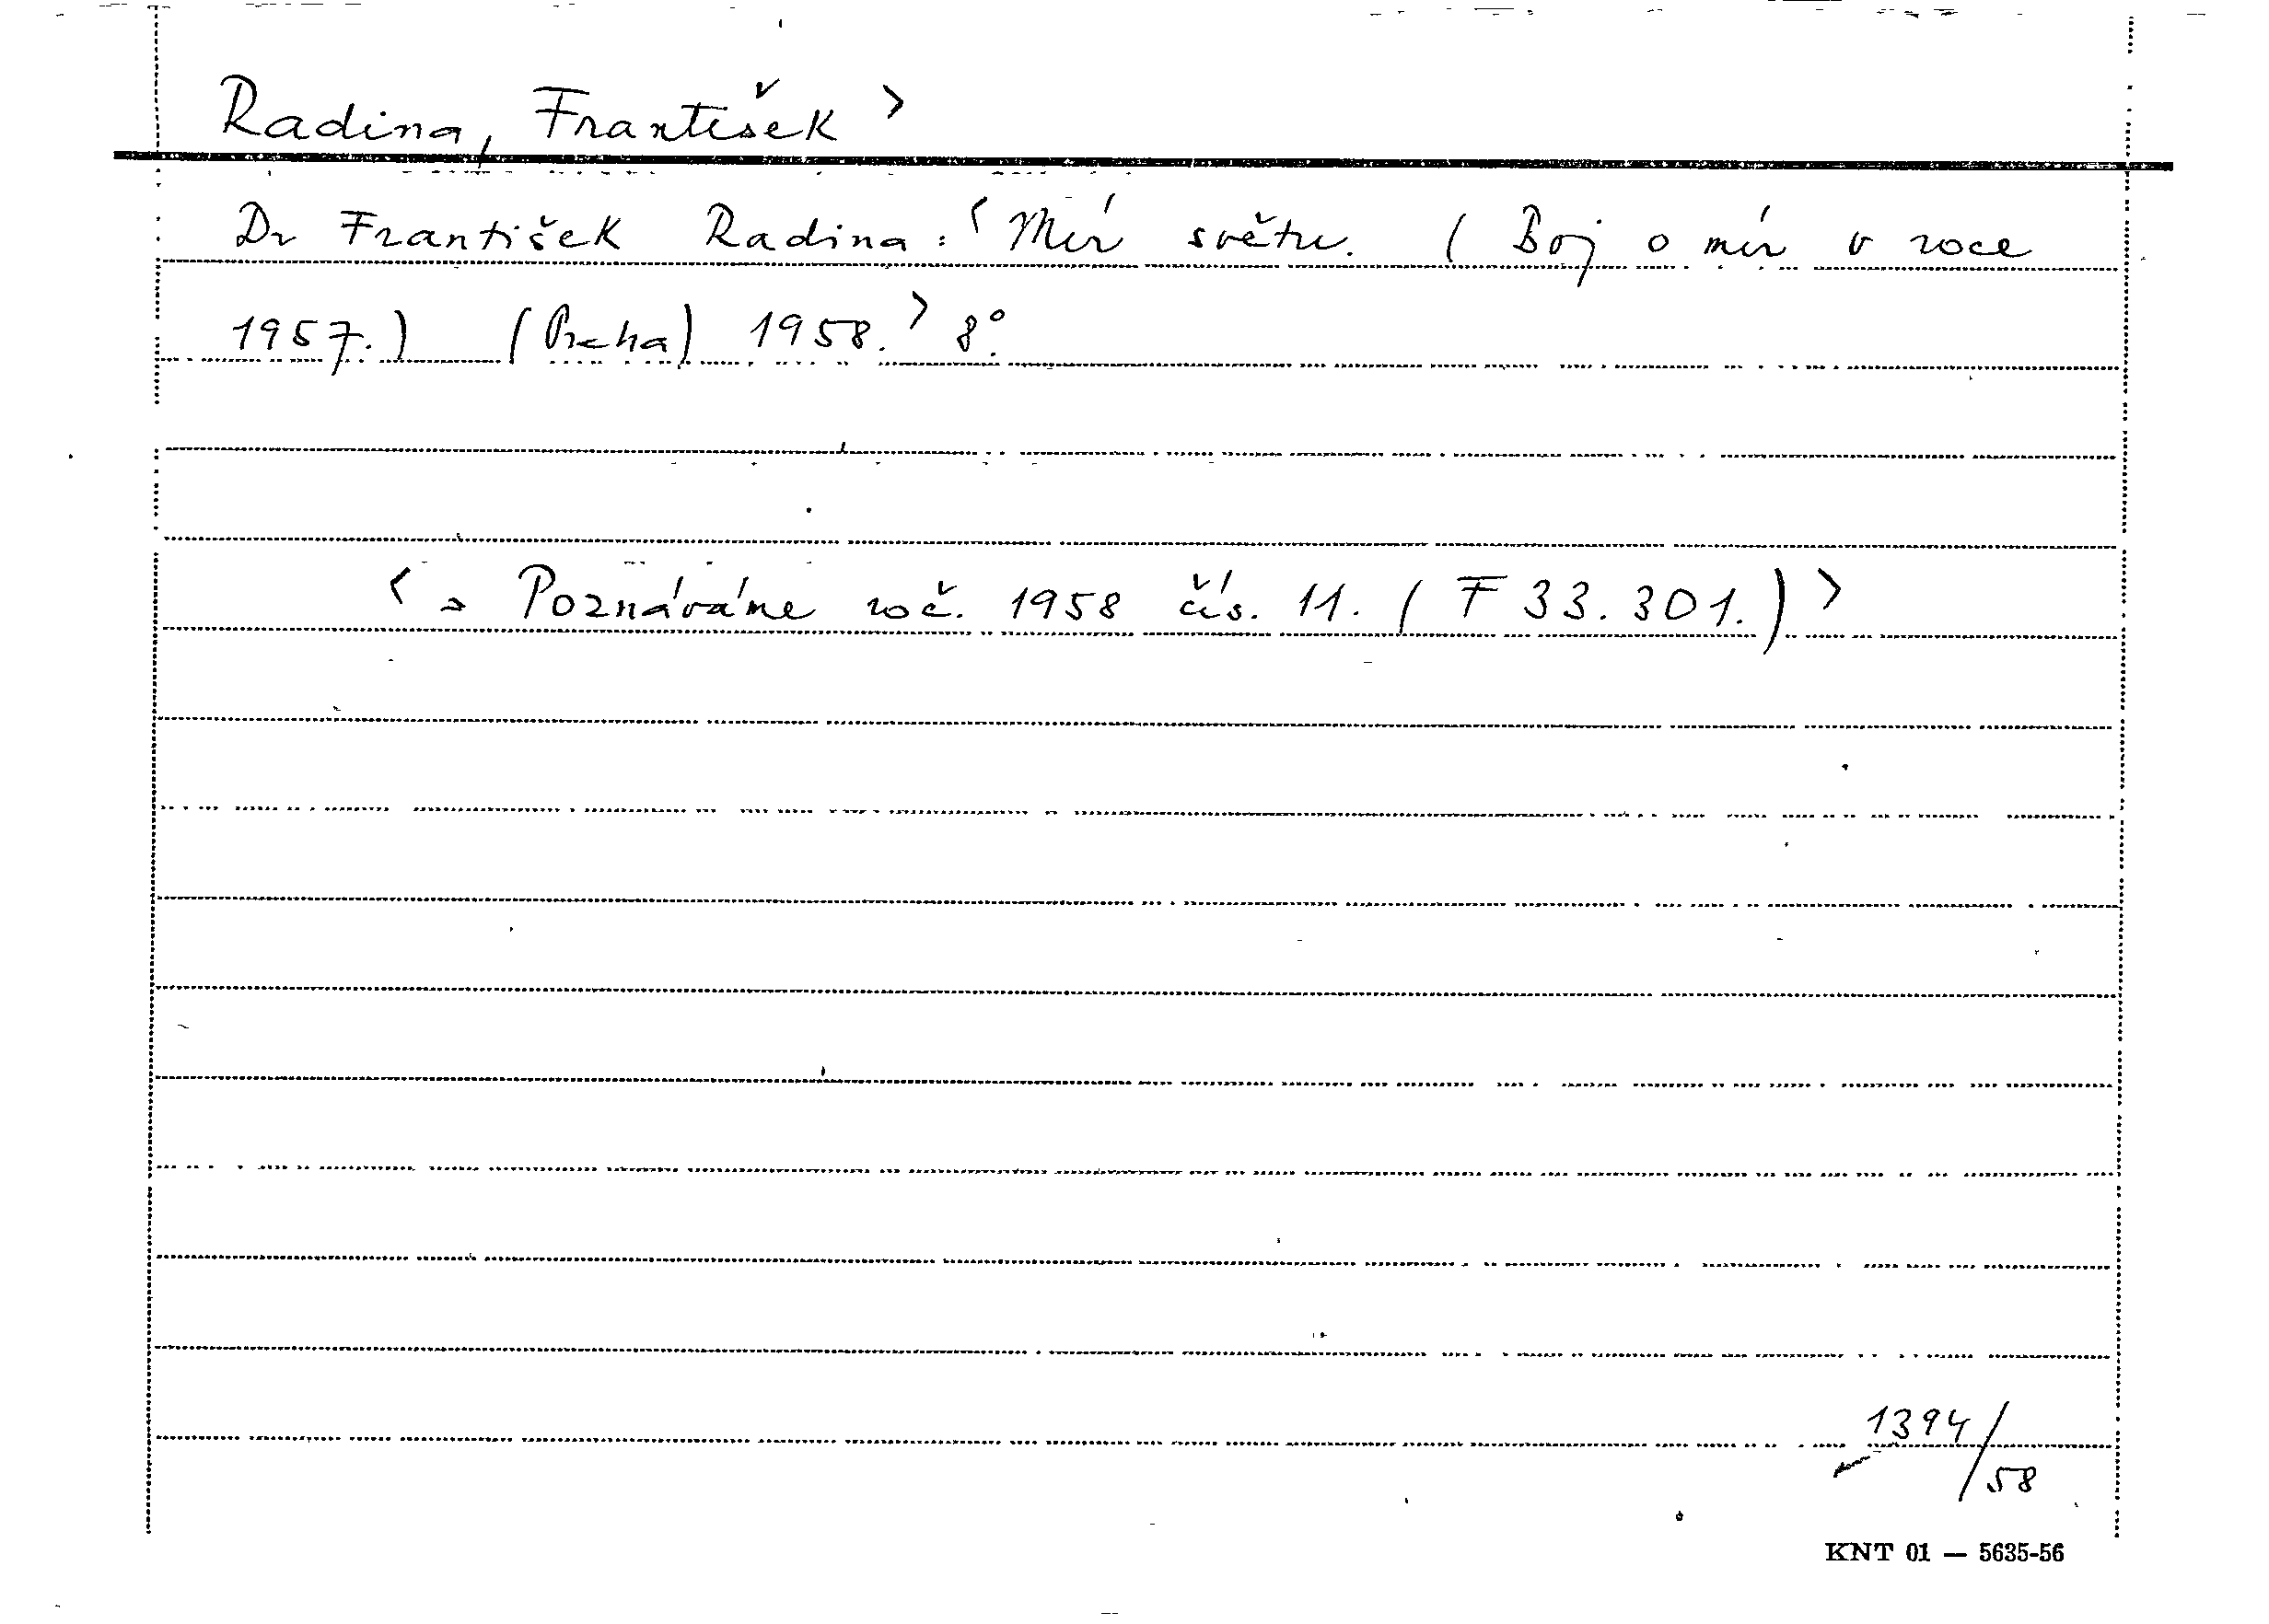 Radina, František >
Dr František Radina: < Mír světu. ( Boj o mír v roce
1957.) (Praha) 1958. > 8°.
< = Poznáváme roč. 1958 čís. 11. ( F 33.301.) >
1394/58
KNT 01 — 5635-56